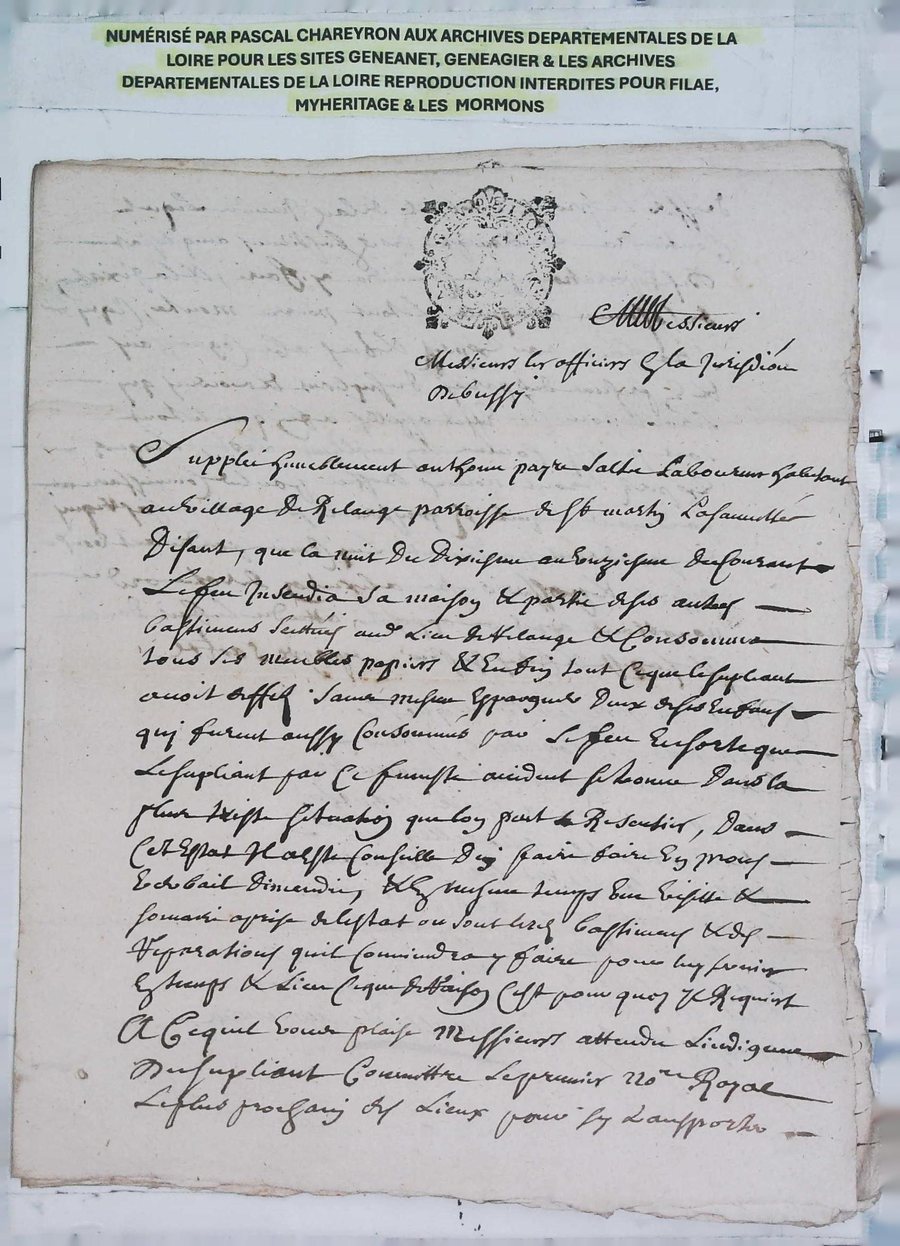 NUMÉRISÉ PAR PASCAL CHAREYRON AUX ARCHIVES DEPARTEMENTALES DE LA
LOIRE POUR LES SITES GENEANET, GENEAGIER & LES ARCHIVES
DEPARTEMENTALES DE LA LOIRE REPRODUCTION INTERDITES POUR FILAE,
MYHERITAGE & LES MORMONS
Messieurs
Messieurs les officiers En la Jurisdion
Debussy
Supplie humblement anthoine payre Laboureur habitant
au village De Relange parroisse de st martin Lasauvetté
Disant, que la nuit Du Dixiesme au unziesme du Courant
Le feu Insendia Sa maison & partie de ses autres
bastimens scittués aud Lieu de Relange & Consomma
tous ses meubles papiers & Enfin tout Ceque le supliant
avoit Sans mesme Espargner Deux de ses Enfans
quj furent aussy Consommés par Le feu En sorte que
Le supliant par Ce funeste accident se trouve Dans la
plus triste situation que lon peut Resentir, Dans
Cet Estat Il a esté Conseillé D'en faire faire En proces
verbail dincendie, & En mesme temps une visitte &
somaire aprise de lestat ou sont lesd bastimens & des
Reparations quil Conviendra y faire pour luy servir
En temps & Lieu Ceque de Raison C'est pour quoy Il Requiert
A Cequil vous plaise Messieurs attendu Lindigence
Du supliant Commettre Le premier no.re Royal
Le plus prochain des Lieux pour sy Transporter